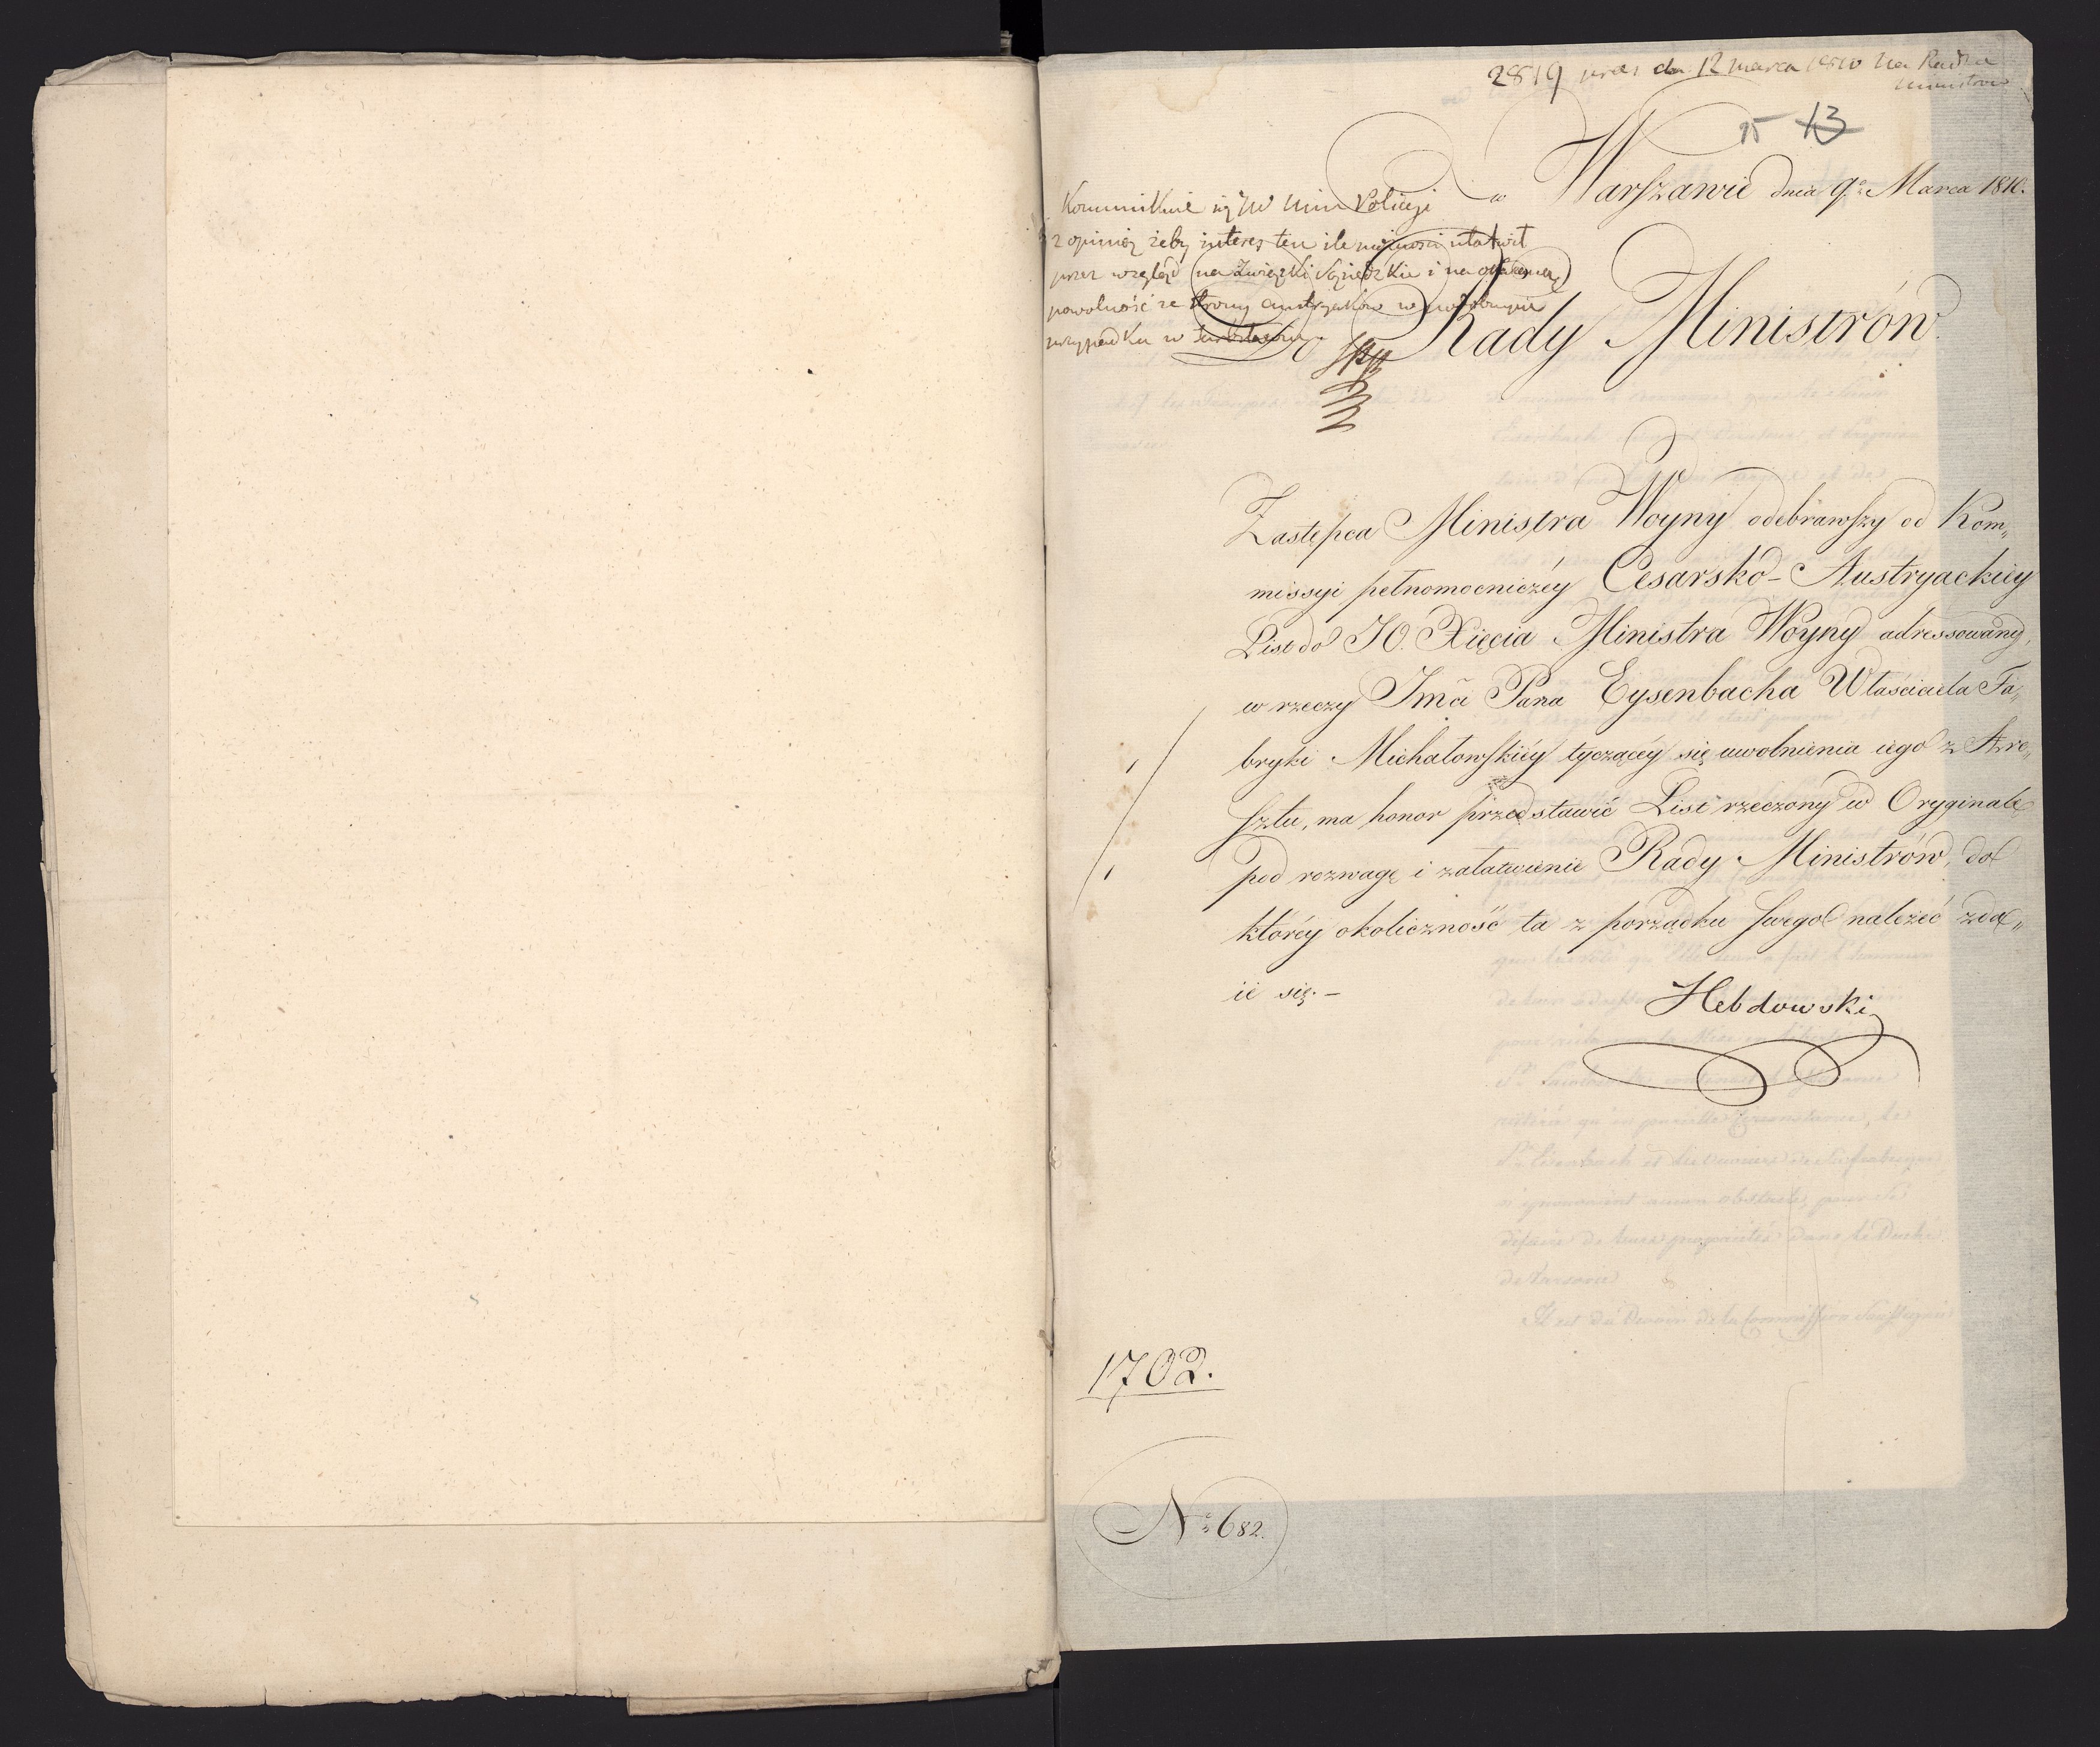 2819 pres dn 12 marca 1810 na Radzie
Ministrów
15 13
w Warszawie dnia 9º Marca 1810.
Kommunikuie się JW Min Policyi
z opinią żeby interes ten ile możności ułatwił
przez wzgląd na związki sąsiedzkie i na okazaną
powolność ze strony austryaków w podobnym
przypadku w
Do Rady Ministrów
Zastępca Ministra Woyny odebrawszy od Kom„
missyi pełnomocniczéy Cesarsko-Austryackiéy
List do JO. Xięcia Ministra Woyny adressowany,
w rzeczy Jmći Pana Eysenbacha Właściciela Fa„
bryki Michałowskiéy tyczącéy się uwolnienia iego z Are„
sztu, ma honor przedstawić List rzeczony w Oryginale
pod rozwagę i załatwienie Rady Ministrów, do
któréy okoliczność ta z porządku swego należeć zda„
ie się.–
Hebdowski
1702.
Nº 682.